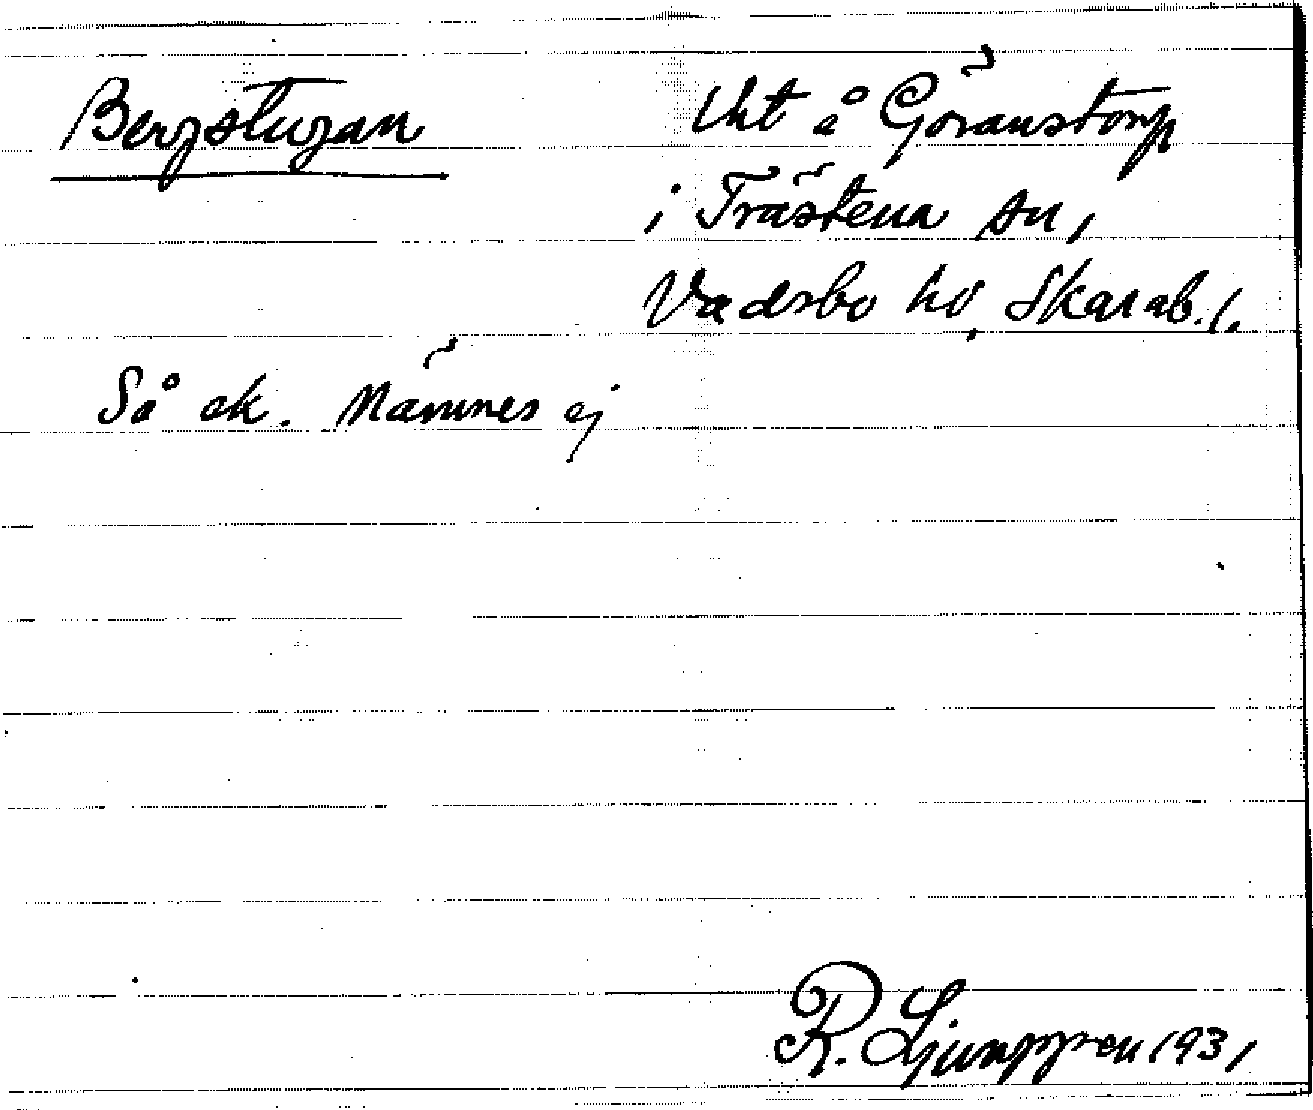 Bergstugan
Lht å Göranstorp
i Trästena sn,
Vadsbo hd, Skarab. l.
Så ek. Nämnes ej
R. Ljunggren 1931